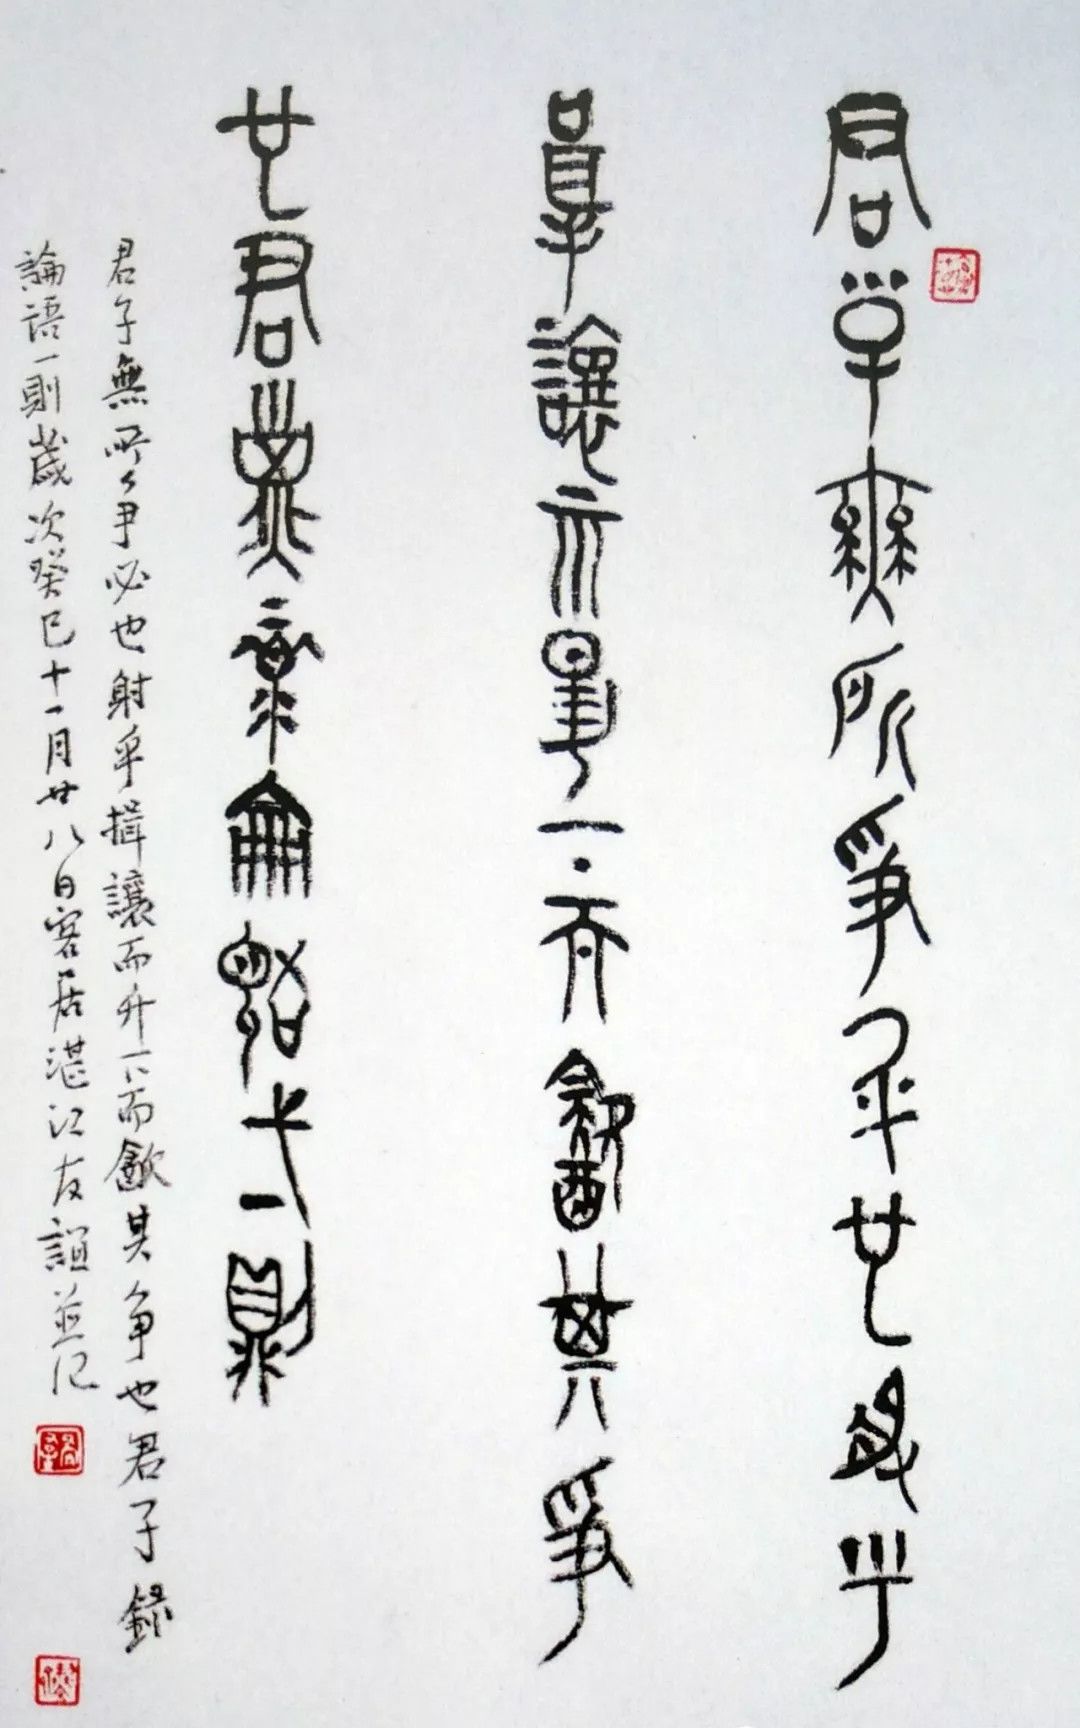 君子無所爭必也射乎
揖讓而升下而飲其爭
也君子录論語弌則
君子無所爭必也射乎揖讓而升下而飲其爭也君子錄
論語一則歲次癸巳十一月廿八日客居湛江友誼並记